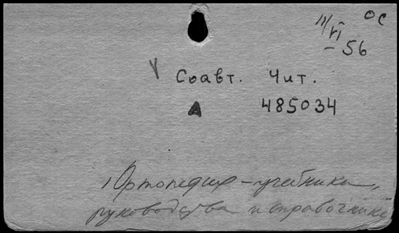 11/VI ОС
- 56
V Соавт. Чит.
А 485034
Ортопедия - учебники,
руководства и справочники